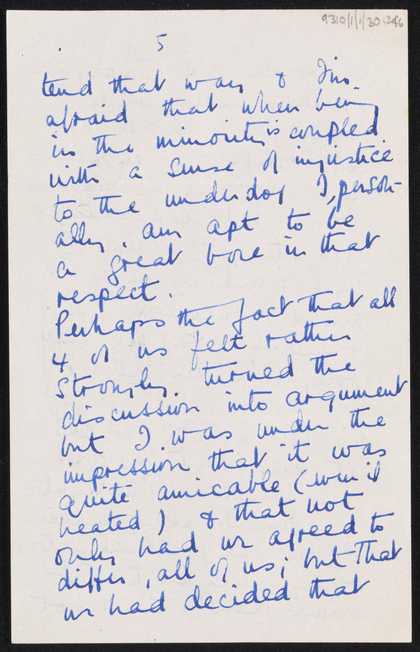 9310/1/1/30.246
5
tend that way & I'm
afraid that when being
in the minority is coupled
with a sense of injustice
to the underdog I, person-
ally, am apt to be
a great bore in that
respect.
Perhaps the fact that all
4 of us felt rather
strongly, turned the
discussion into argument
but I was under the
impression that it was
quite amicable (even if
heated) & that not
only had we agreed to
differ, all of us; but that
we had decided that